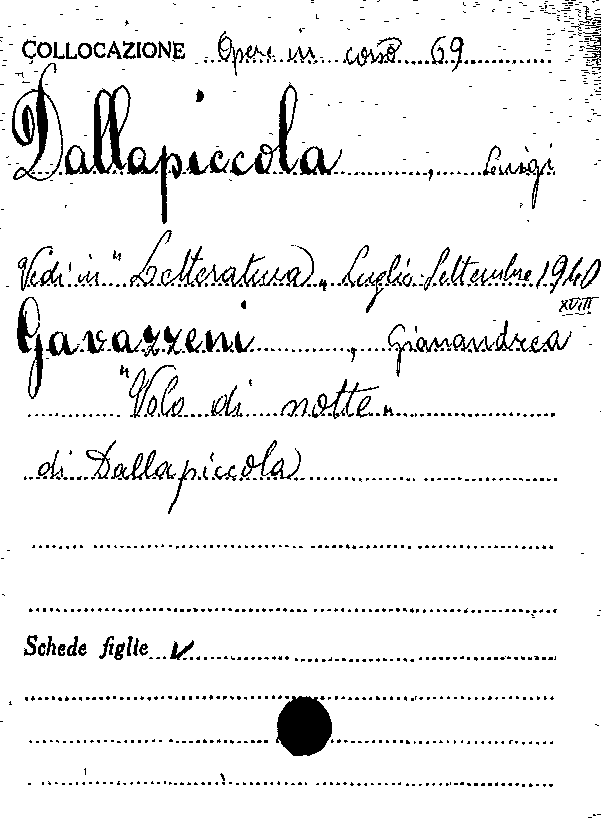 COLLOCAZIONE Opere in corso 69
Dallapiccola, Luigi
Vedi in "Letteratura" Luglio-Settembre 1940
XVIII
Gavazzeni, Gianandrea
"Volo di notte"
di Dallapiccola
Schede figlie